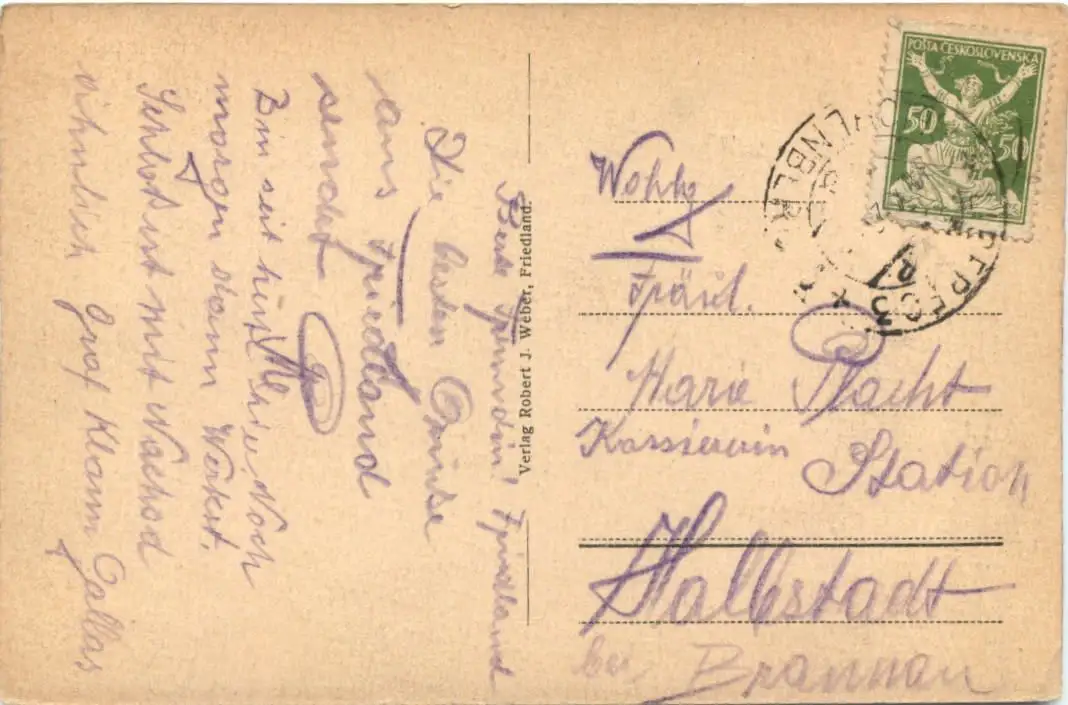 Beste Freundin, Friedland
Die besten Grüße
aus Friedland
sendet
Bin seit heut hier Noch
morgen dann Werkst.
Schlost mit Nachod
ähnlich Graf Klamm Gallas
Verlag Robert J. Weber, Friedland.
POŠTA ČESKOSLOVENSKÁ
50
50
Wohlg
Fräul.
Marie Placht
Kassierein Station
Halbstadt
bei Braunau